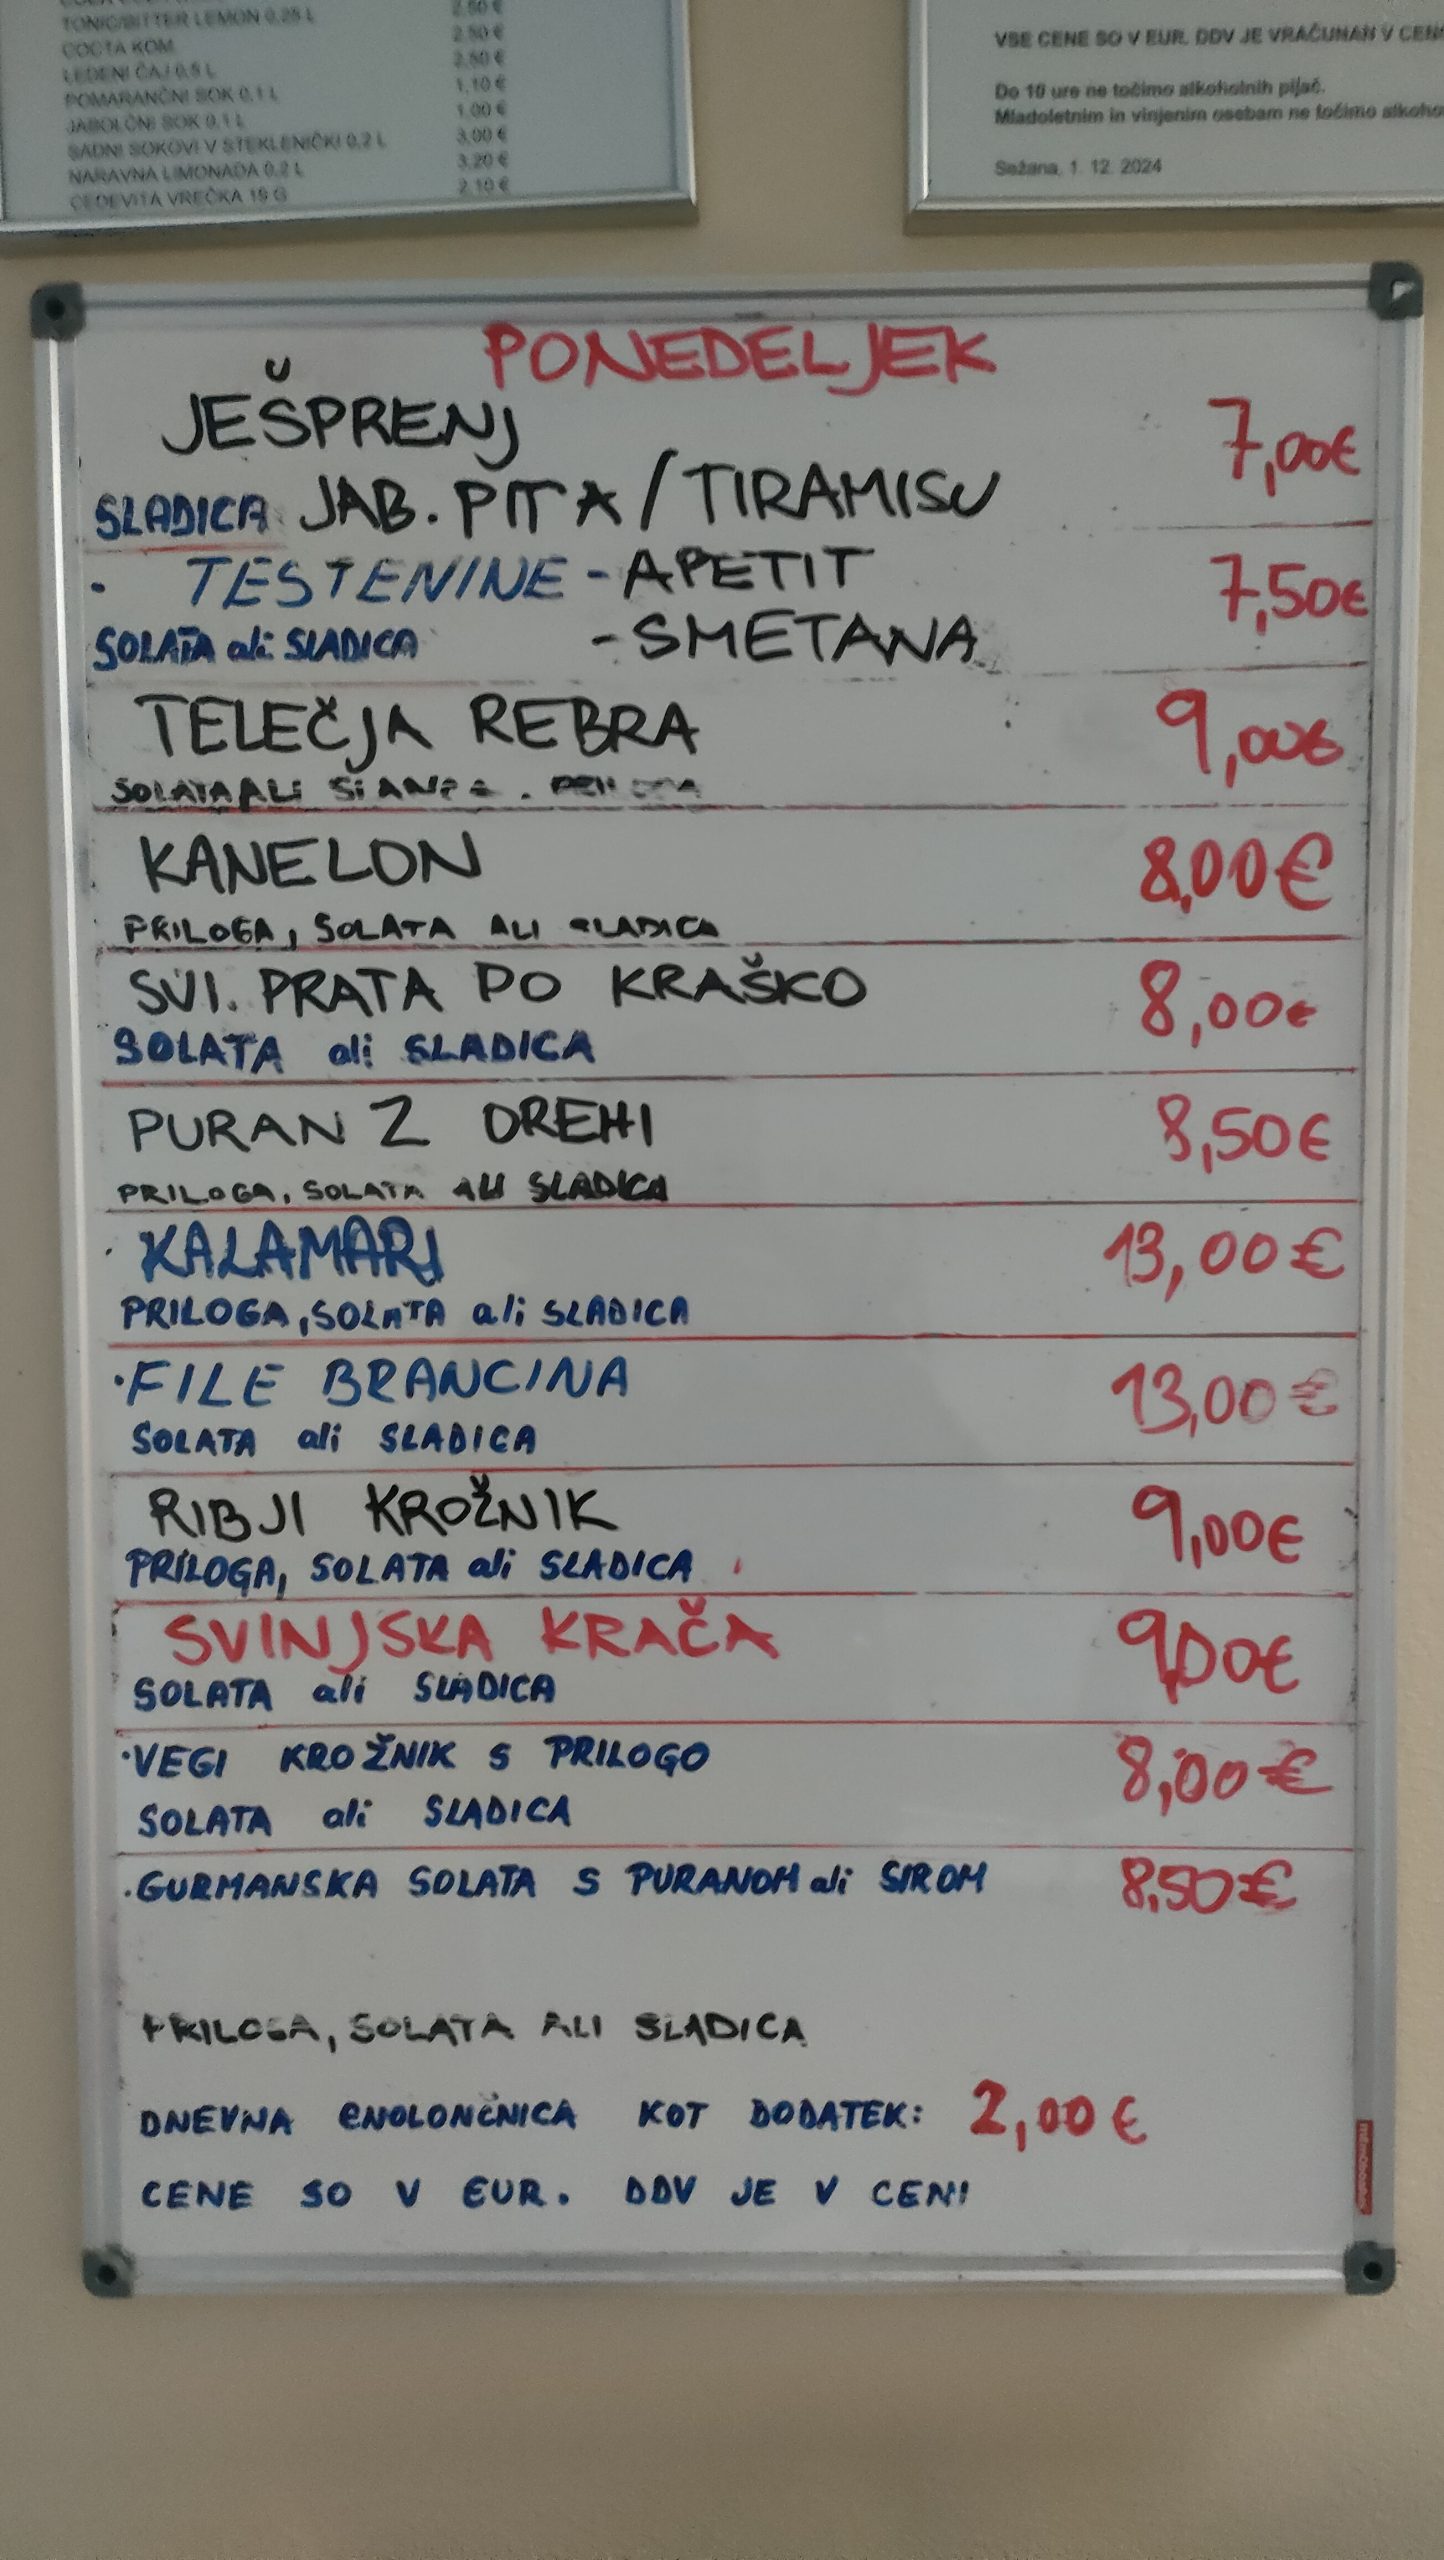 TONIC/BITTER LEMON 0,25 L 2.50 €
COCTA KOM. 2.50 €
LEDENI ČAJ 0,5 L 2.50 €
POMARANČNI SOK 0,1 L 1.10 €
JABOLČNI SOK 0,1 L 1.00 €
SADNI SOKOVI V STEKLENIČKI 0,2 L 3.00 €
NARAVNA LIMONADA 0,2 L 3.20 €
CEDEVITA VREČKA 19 G 2.10 €
VSE CENE SO V EUR. DDV JE VRAČUNAN V
Do 10 ure ne točimo alkoholnih pijač.
Mladoletnim in vinjenim osebam ne točimo
Sežana, 1. 12. 2024
PONEDELJEK
JEŠPRENJ 7,00€
SLADICA JAB. PITA / TIRAMISU
· TESTENINE - APETIT 7,50€
SOLATA ali SLADICA - SMETANA
TELEČJA REBRA 9,00€
SOLATA ALI
KANELON 8,00€
PRILOGA, SOLATA ALI SLADICA
SVI. PRATA PO KRAŠKO 8,00€
SOLATA ali SLADICA
PURAN Z OREHI 8,50€
PRILOGA, SOLATA ALI SLADICA
· KALAMARI 13,00€
PRILOGA, SOLATA ali SLADICA
· FILE BRANCINA 13,00€
SOLATA ali SLADICA
RIBJI KROŽNIK 9,00€
PRILOGA, SOLATA ali SLADICA
SVINJSKA KRAČA 9,00€
SOLATA ali SLADICA
· VEGI KROŽNIK S PRILOGO 8,00€
SOLATA ali SLADICA
· GURMANSKA SOLATA S PURANOM ali SIROM 8,50€
PRILOGA, SOLATA ALI SLADICA
DNEVNA ENOLONČNICA KOT DODATEK: 2,00€
CENE SO V EUR. DDV JE V CENI